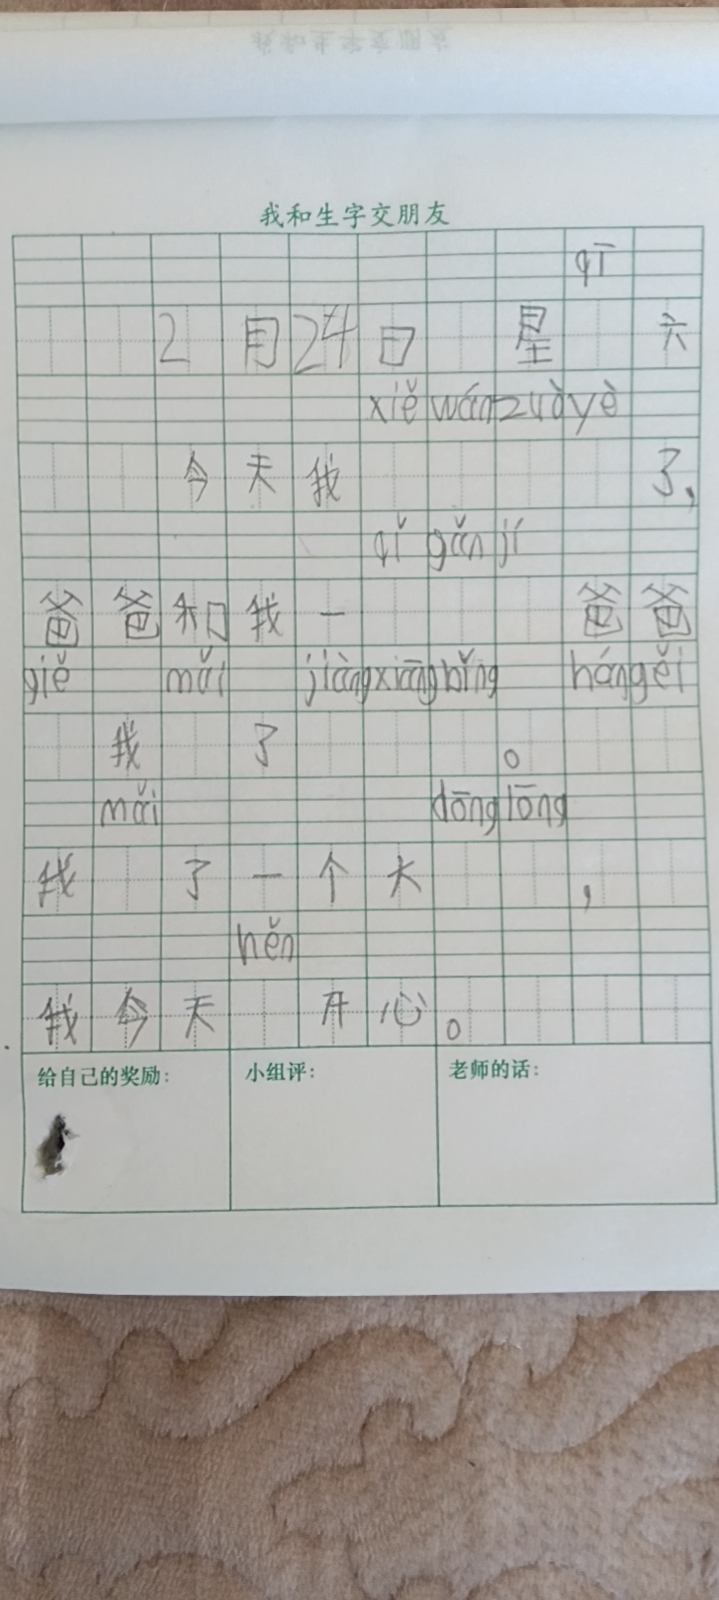 我和生字交朋友
qī
2月24日 星 六
xiě wán zuò yè
今天我 了，
qǐ gǎn jí
爸爸和我一 爸爸
giě mǎi jiàng xiāng bǐng hán gěi
我 了 。
mǎi dōng lōng
我 了一个大 ，
hěn
我今天 开心。
给自己的奖励： 小组评： 老师的话：